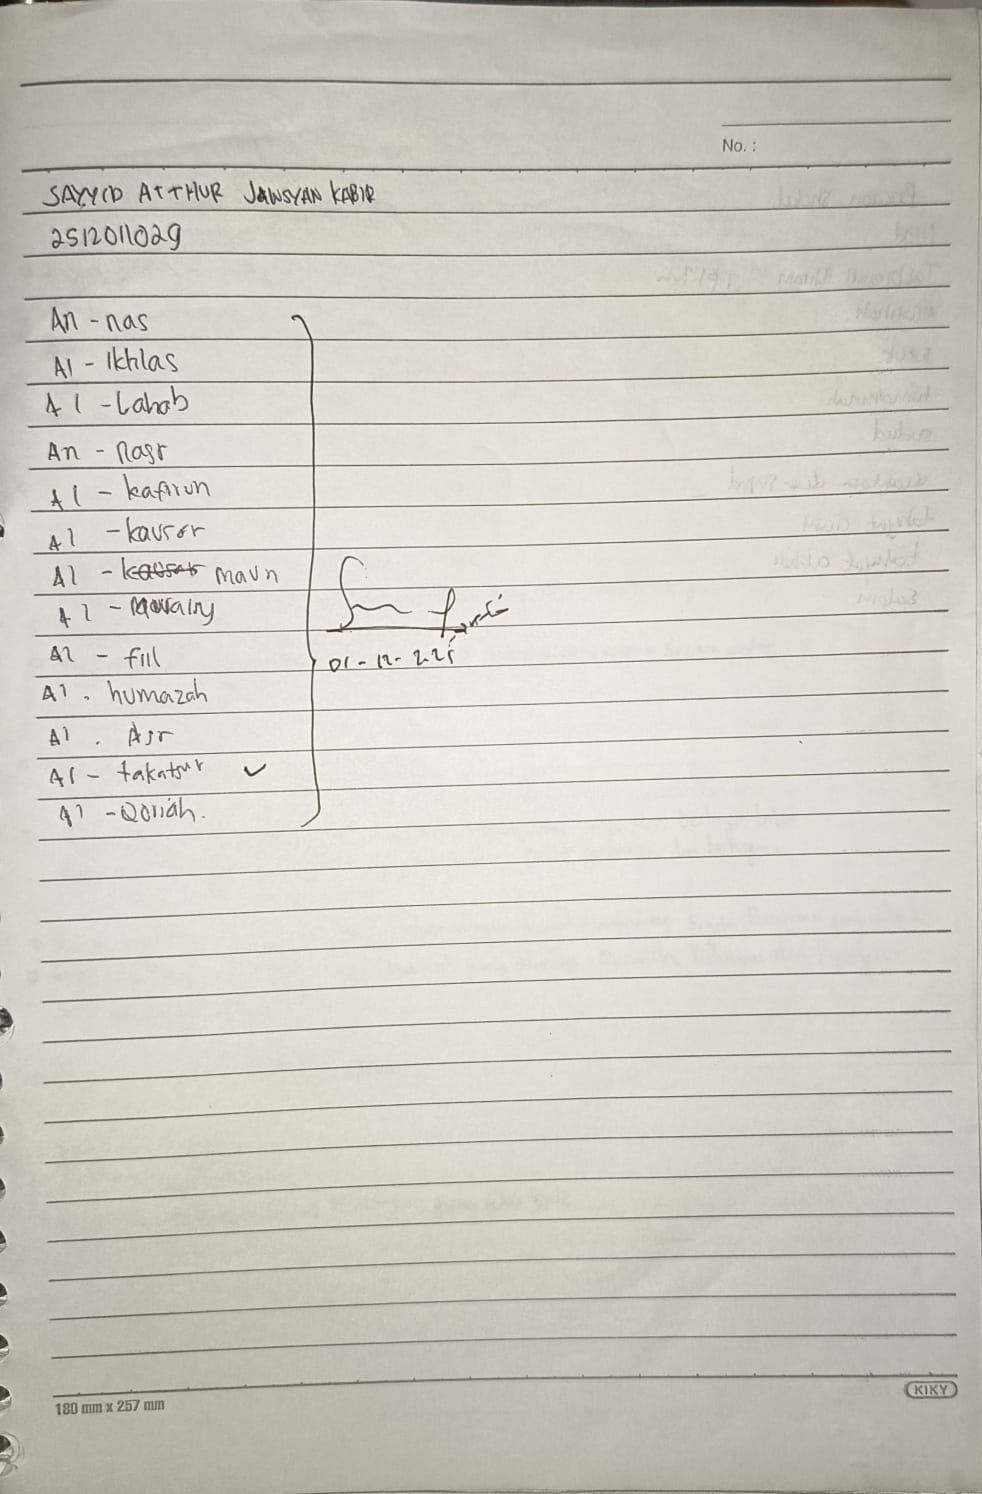 No. :
SAYYID ATTHUR JAWSYAN KABIR
2512011029
An - nas
Al - Ikhlas
Al - Lahab
An - Nasr
Al - kafirun
Al - kausar
Al - kausar maun
Al -
Al - fiil
Al . humazah
Al . Asr
Al - takatsur ✓
Al - Qoriah.
01-12-225
180 mm x 257 mm
KIKY